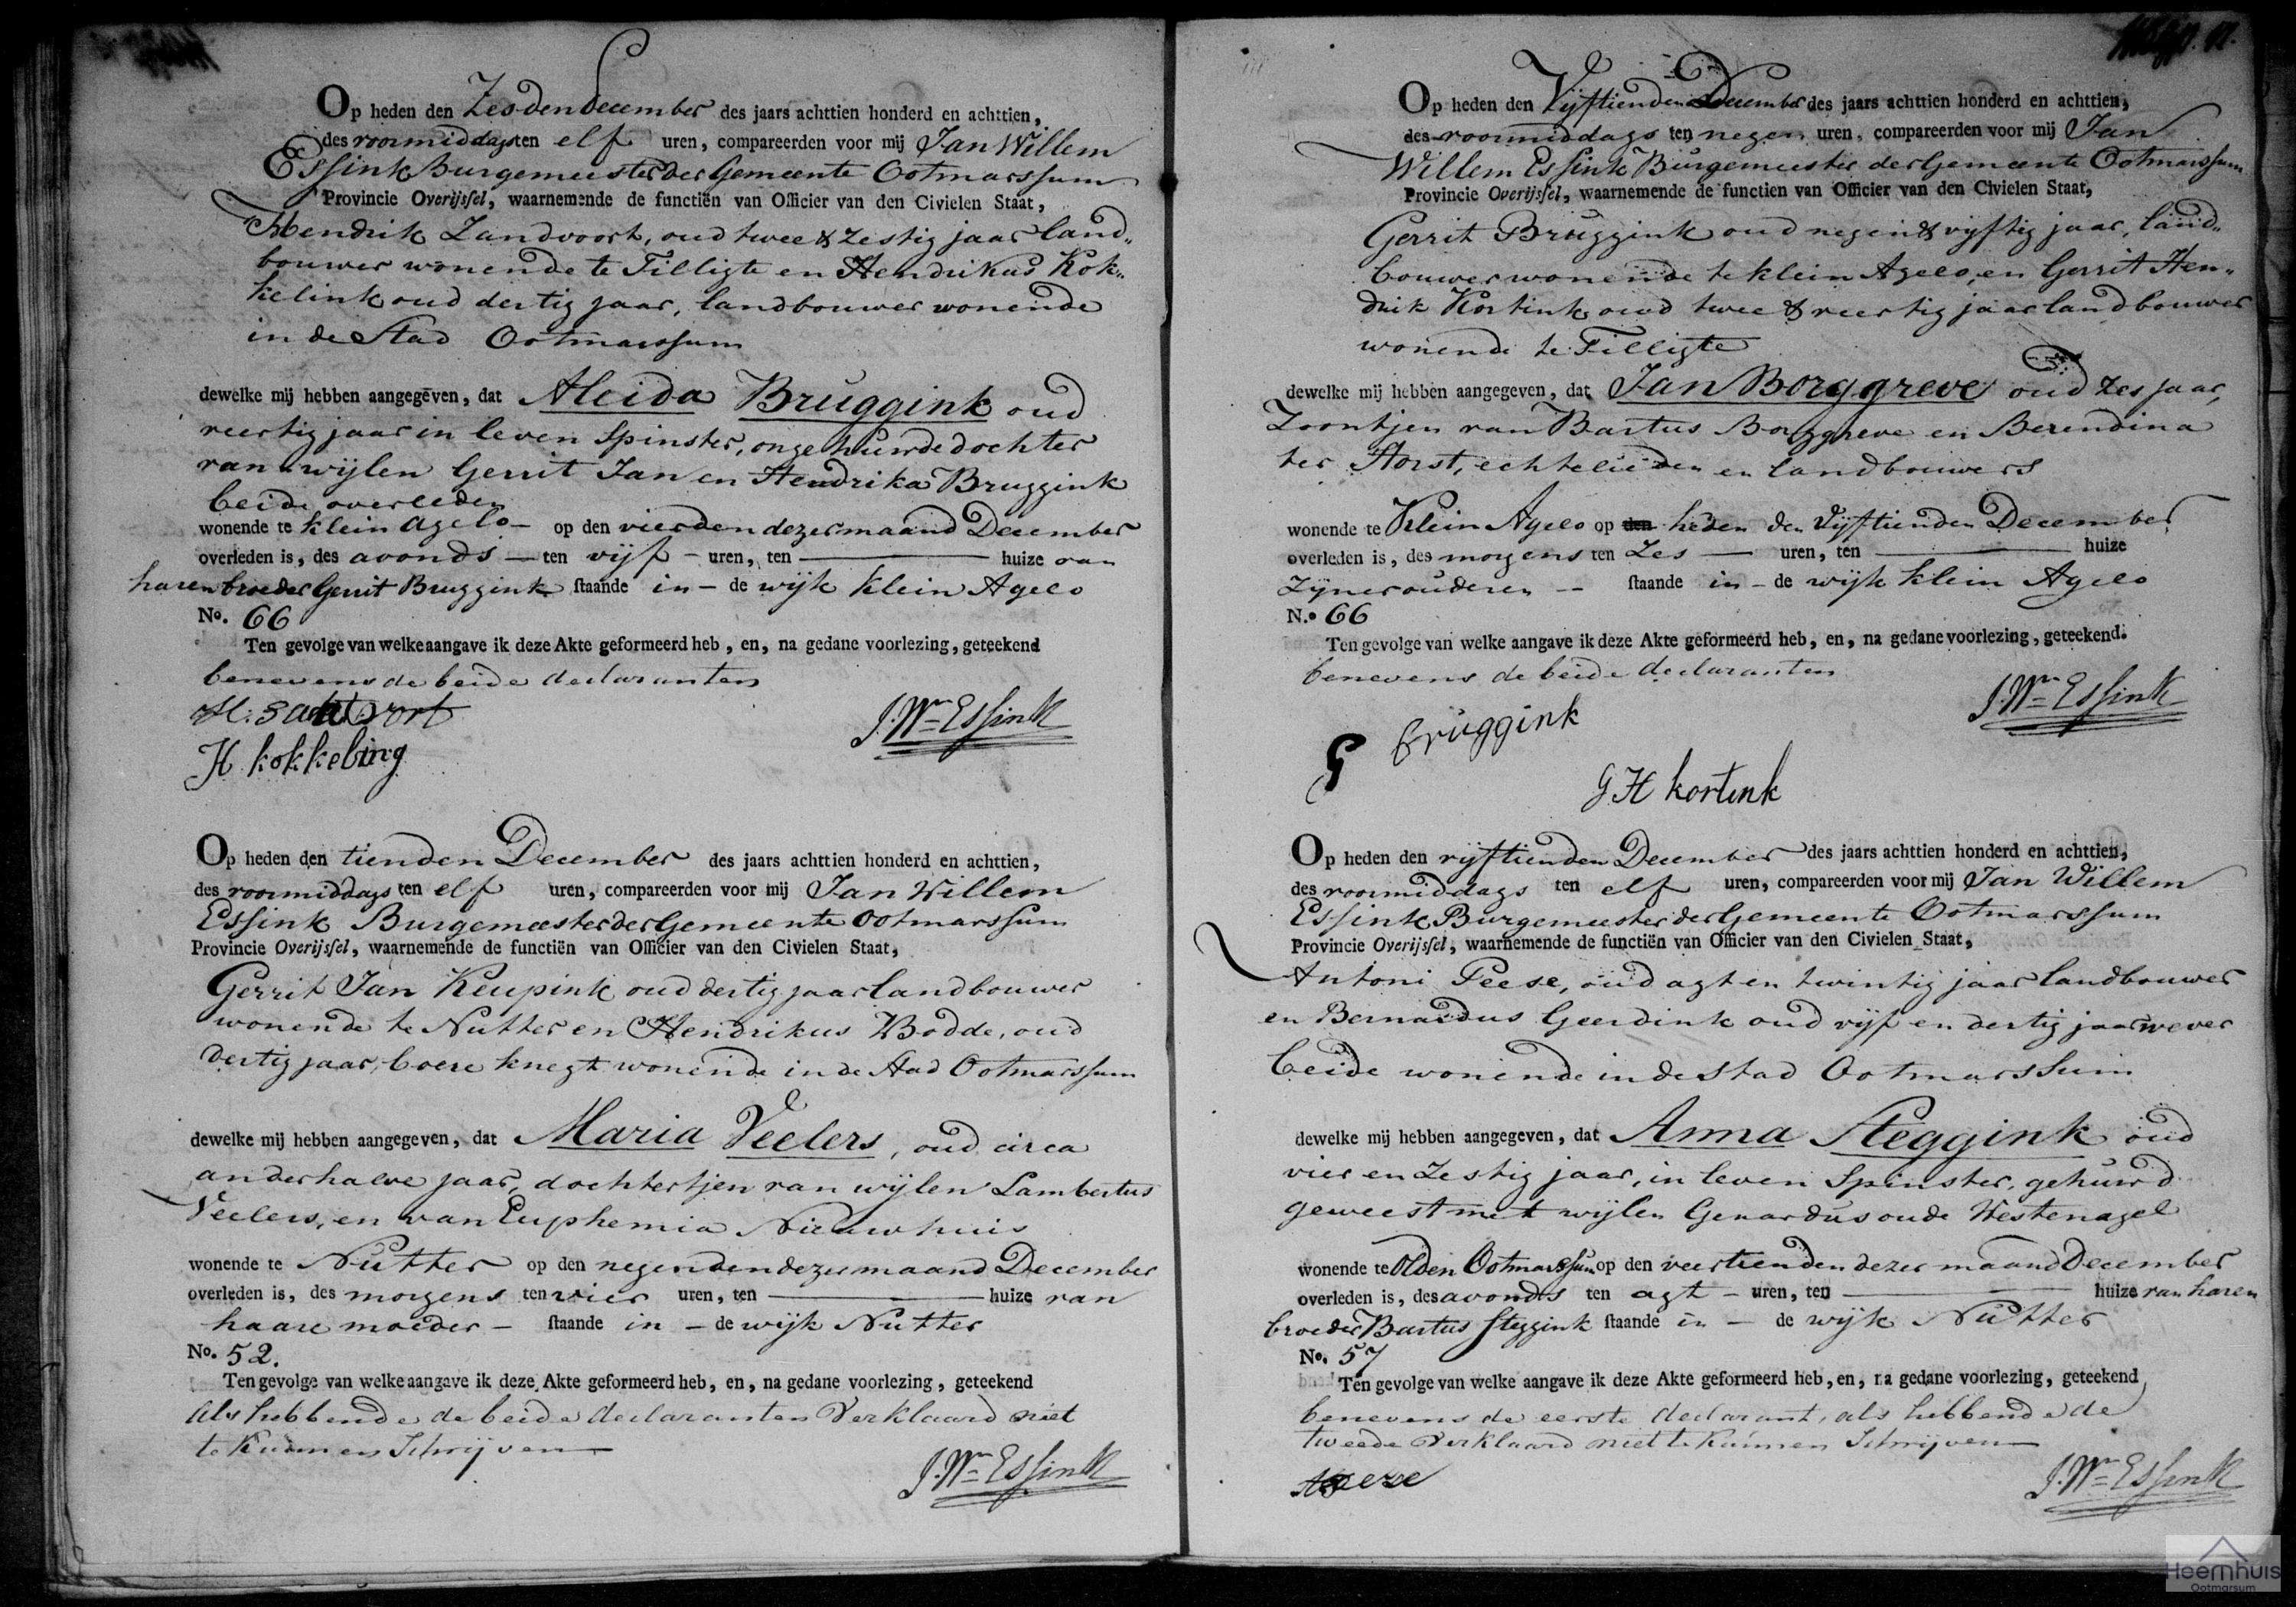 Op heden den Zesden December des jaars achttien honderd en achttien,
des voormiddags ten elf uren, compareerden voor mij Jan Willem
Essink Burgemeester der Gemeente Ootmarssum
Provincie Overijssel, waarnemende de functiën van Officier van den Civielen Staat,
Hendrik Zandvoort, oud twee & zestig jaar land„
bouwer wonende te Tilligte en Hendrikus Kok„
kelink oud dertig jaar, landbouwer wonende
in de Stad Ootmarssum
dewelke mij hebben aangegeven, dat Aleida Bruggink oud
veertig jaar in leven Spinster, ongehuwde dochter
van wijlen Gerrit Jan en Hendrika Bruggink
beide overleden
wonende te klein Agelo — op den vierden dezer maand December
overleden is, des avonds — ten vijf — uren, ten — huize van
haren broeder Gerrit Bruggink staande in — de wijk klein Ageeo
No. 66
Ten gevolge van welke aangave ik deze Akte geformeerd heb, en, na gedane voorlezing, geteekend
benevens de beide declaranten
J. Wm Essink
H kokkeling
Op heden den tienden December des jaars achttien honderd en achttien,
des voormiddags ten elf uren, compareerden voor mij Jan Willem
Essink Burgemeester der Gemeente Ootmarssum
Provincie Overijssel, waarnemende de functiën van Officier van den Civielen Staat,
Gerrit Jan Keupink oud dertig jaar landbouwer
wonende te Nutter en Hendrikus Bodde, oud
dertig jaar, boere knegt wonende in de Stad Ootmarssum
dewelke mij hebben aangegeven, dat Maria Veelers, oud circa
anderhalve jaar, dochtertjen van wijlen Lambertus
Veelers, en van Euphemia Nieuwhuis
wonende te Nutter op den negenden dezer maand December
overleden is, des morgens ten vier uren, ten — huize van
haare moeder — staande in — de wijk Nutter
No. 52.
Ten gevolge van welke aangave ik deze Akte geformeerd heb, en, na gedane voorlezing, geteekend
als hebbende de beide declaranten Verklaard niet
te kunnen Schrijven
J. Wm Essink
Op heden den Vijftienden December des jaars achttien honderd en achttien,
des voormiddags ten negen uren, compareerden voor mij Jan
Willem Essink Burgemeester der Gemeente Ootmarssum
Provincie Overijssel, waarnemende de functien van Officier van den Civielen Staat,
Gerrit Bruggink oud negen & vyftig jaar, land„
bouwer wonende te klein Ageeo, en Gerrit Hen„
drik Kortink oud twee & veertig jaar landbouwer
wonende te Tilligte
dewelke mij hebben aangegeven, dat Jan Borggreve oud zes jaar,
Zoontjen van Bartus Borggreve en Berendina
ter Horst, echtelieden en landbouwers
wonende te Klein Ageeo op den heden den Vijftienden December
overleden is, des morgens ten Zes — uren, ten — huize
Zijner ouderen — staande in — de wijk klein Ageeo
N.o 66
Ten gevolge van welke aangave ik deze Akte geformeerd heb, en, na gedane voorlezing, geteekend.
benevens de beide declaranten
J. Wm Essink
G Bruggink
G H kortink
Op heden den vijftienden December des jaars achttien honderd en achttien,
des voormiddags ten elf uren, compareerden voor mij Jan Willem
Essink Burgemeester der Gemeente Ootmarssum
Provincie Overijssel, waarnemende de functiën van Officier van den Civielen Staat,
Antoni Feese, oud agt en twintig jaar landbouwer
en Bernardus Geerdink oud vijf en dertig jaar wever
beide wonende in de Stad Ootmarssum
dewelke mij hebben aangegeven, dat Anna Steggink oud
vier en zestig jaar, in leven Spinster, gehuwd
geweest met wijlen Gerardus oude Westenagel
wonende te Olden Ootmarssum op den veertienden dezer maand December
overleden is, des avonds ten agt — uren, ten — huize van haren
broeder Bartus Steggink staande in — de wijk Nutter
No. 57
Ten gevolge van welke aangave ik deze Akte geformeerd heb, en, na gedane voorlezing, geteekend
benevens de eerste declarant, als hebbende de
tweede Verklaard niet te kunnen Schrijven
J. Wm Essink
Heemhuis
Ootmarsum